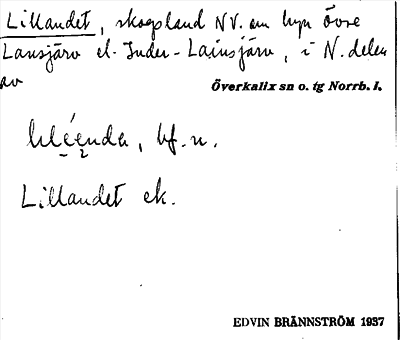 Lillandet, skogsland NV. om byn övre
Lansjärv el. Inder-Lainsjärv, i N. delen
av
Överkalix sn o. tg Norrb. l.
lıléenda, bf. n.
Lillandet ek.
EDVIN BRÄNNSTRÖM 1937